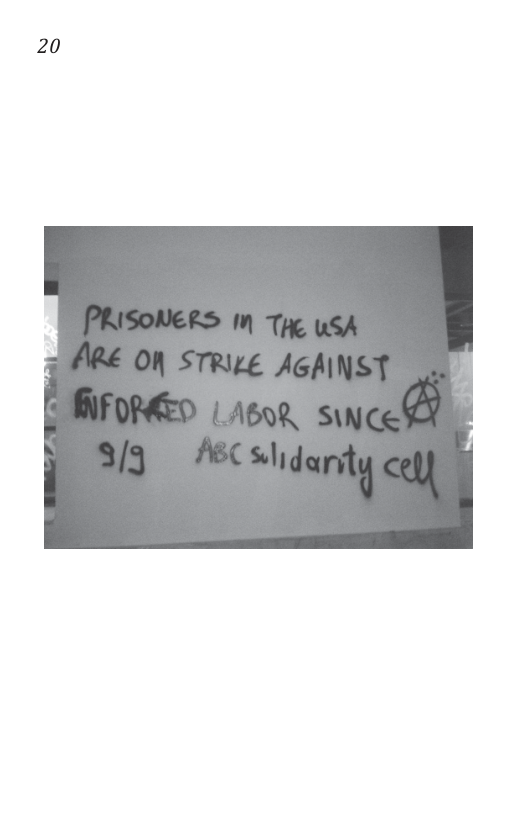 20
PRISONERS IN THE USA
ARE ON STRIKE AGAINST
ENFORCED LABOR SINCE
9/9 ABC solidarity cell